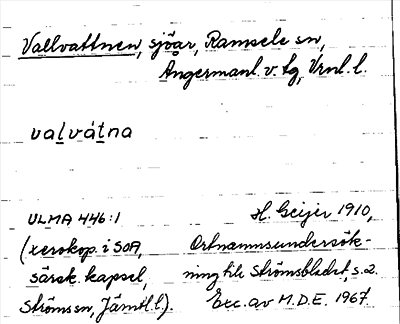 Vallvattnen, sjöar, Ramsele sn,
Ångermanl. v. tg, Vrnl. l.
valvátna
ULMA 446:1 H. Geijer 1910,
(xerokop. i SOA, Ortnamnsundersök-
särsk. kapsel, ning till Strömsbladet, s. 2.
Ströms sn, Jämtl. l.). Exc. av M.D.E. 1967.